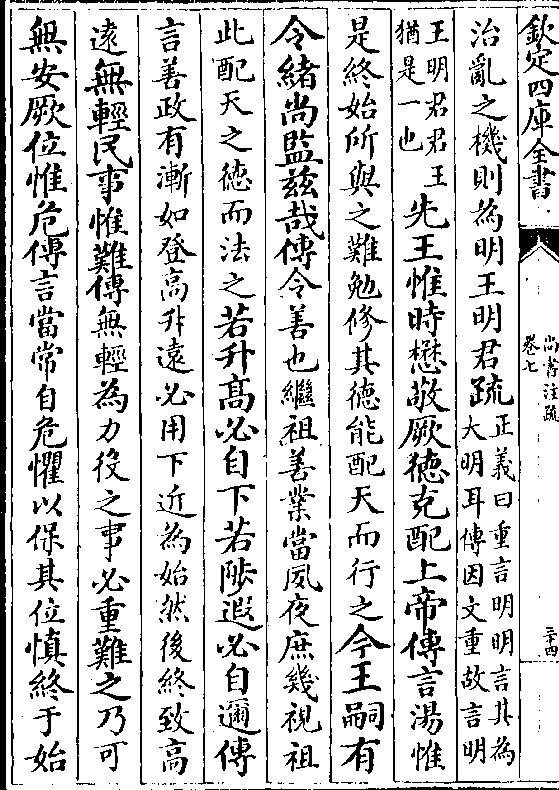 欽定四庫全書
尚書注疏
卷七
二十四
治亂之機則為明王明君疏正義曰重言明明言其為
大明耳傳因文重故言明
王明君君王
猶是一也先王惟時懋敬厥徳克配上帝傳言湯惟
是終始所與之難勉修其德能配天而行之今王嗣有
令緒尚監兹哉傳令善也繼祖善業當夙夜庶幾視祖
此配天之徳而法之若升髙必自下若陟遐必自邇傳
言善政有漸如登高升遠必用下近為始然後終致高
遠無輕民事惟難傳無輕為力役之事必重難之乃可
無安厥位惟危傳言當常自危懼以保其位慎終于始